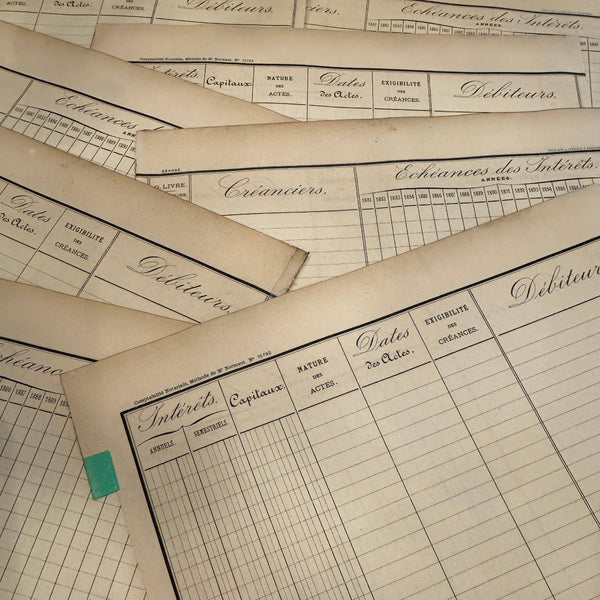 des Actes.
CRÉANCES.
Débiteurs.
Echéances des Intérêts.
ANNÉES.
Comptabilité Notariale, Méthode de Mr Normant, No
Intérêts.
Capitaux.
NATURE
DES
ACTES.
Dates
des Actes.
EXIGIBILITÉ
DES
CRÉANCES.
Débiteurs.
Echéances des
DÉPOSÉ
LIVRE.
Créanciers.
Echéances des Intérêts.
ANNÉES.
1881 1882 1883 1884 1885 1886 1887 1888 1889 1890
Dates
des Actes.
EXIGIBILITÉ
DES
CRÉANCES.
Débiteurs.
1886 1887 1888 1889 1890
Comptabilité Notariale, Méthode de Mr Normant, No
Intérêts.
ANNUELS.
SEMESTRIELS.
Capitaux.
NATURE
DES
ACTES.
Dates
des Actes.
EXIGIBILITÉ
DES
CRÉANCES.
Débiteur